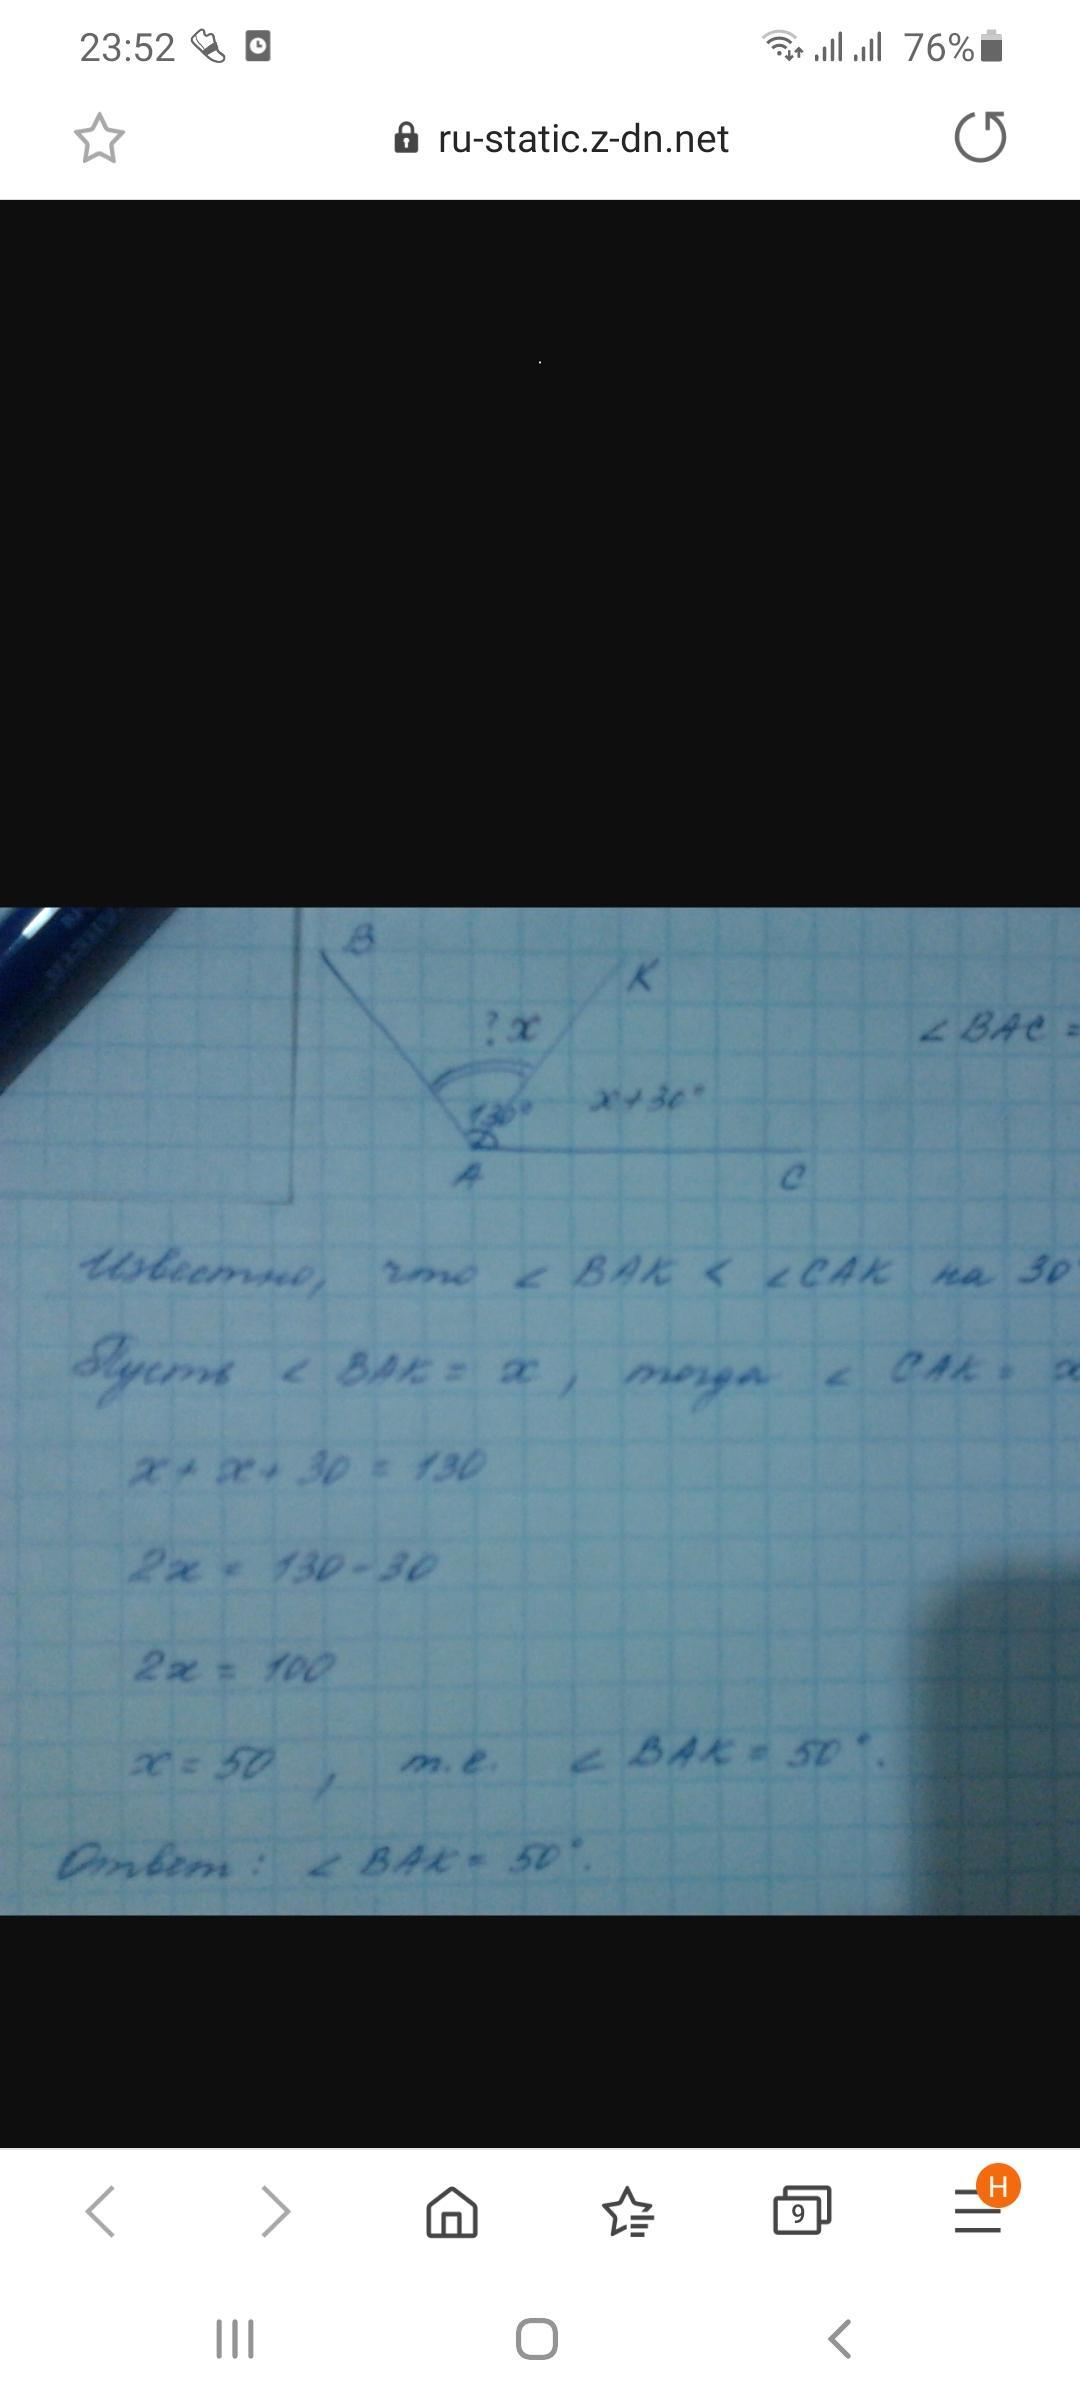 23:52
76%
ru-static.z-dn.net
B
K
? x
∠ BAC =
130°
x+30°
A
C
Известно, что ∠ BAK < ∠CAK на 30°
Пусть ∠ BAK = x, тогда ∠ CAK = x
x + x + 30 = 130
2x = 130 - 30
2x = 100
x = 50, т.е. ∠ BAK = 50°.
Ответ: ∠ BAK = 50°.
9
H